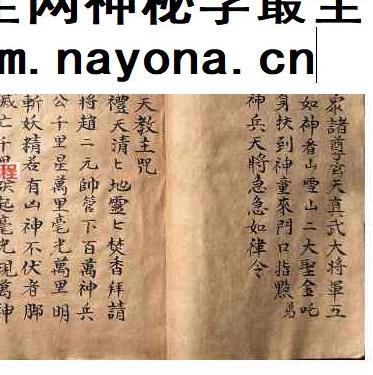 全网神秘学最全
m.nayona.cn
眾諸尊玄天直武大將軍五
如神者山雪山二大聖金吒
身扶到神童來門口指點弟
神兵天將急急如律令
天教主咒
禮天清ヒ地靈ヒ焚香拜請
將趙二元帥管下百萬神兵
公千里星萬里毫光萬里明
斬妖精若有凶神不伏者腳
滅亡千 起毫光現萬神
程